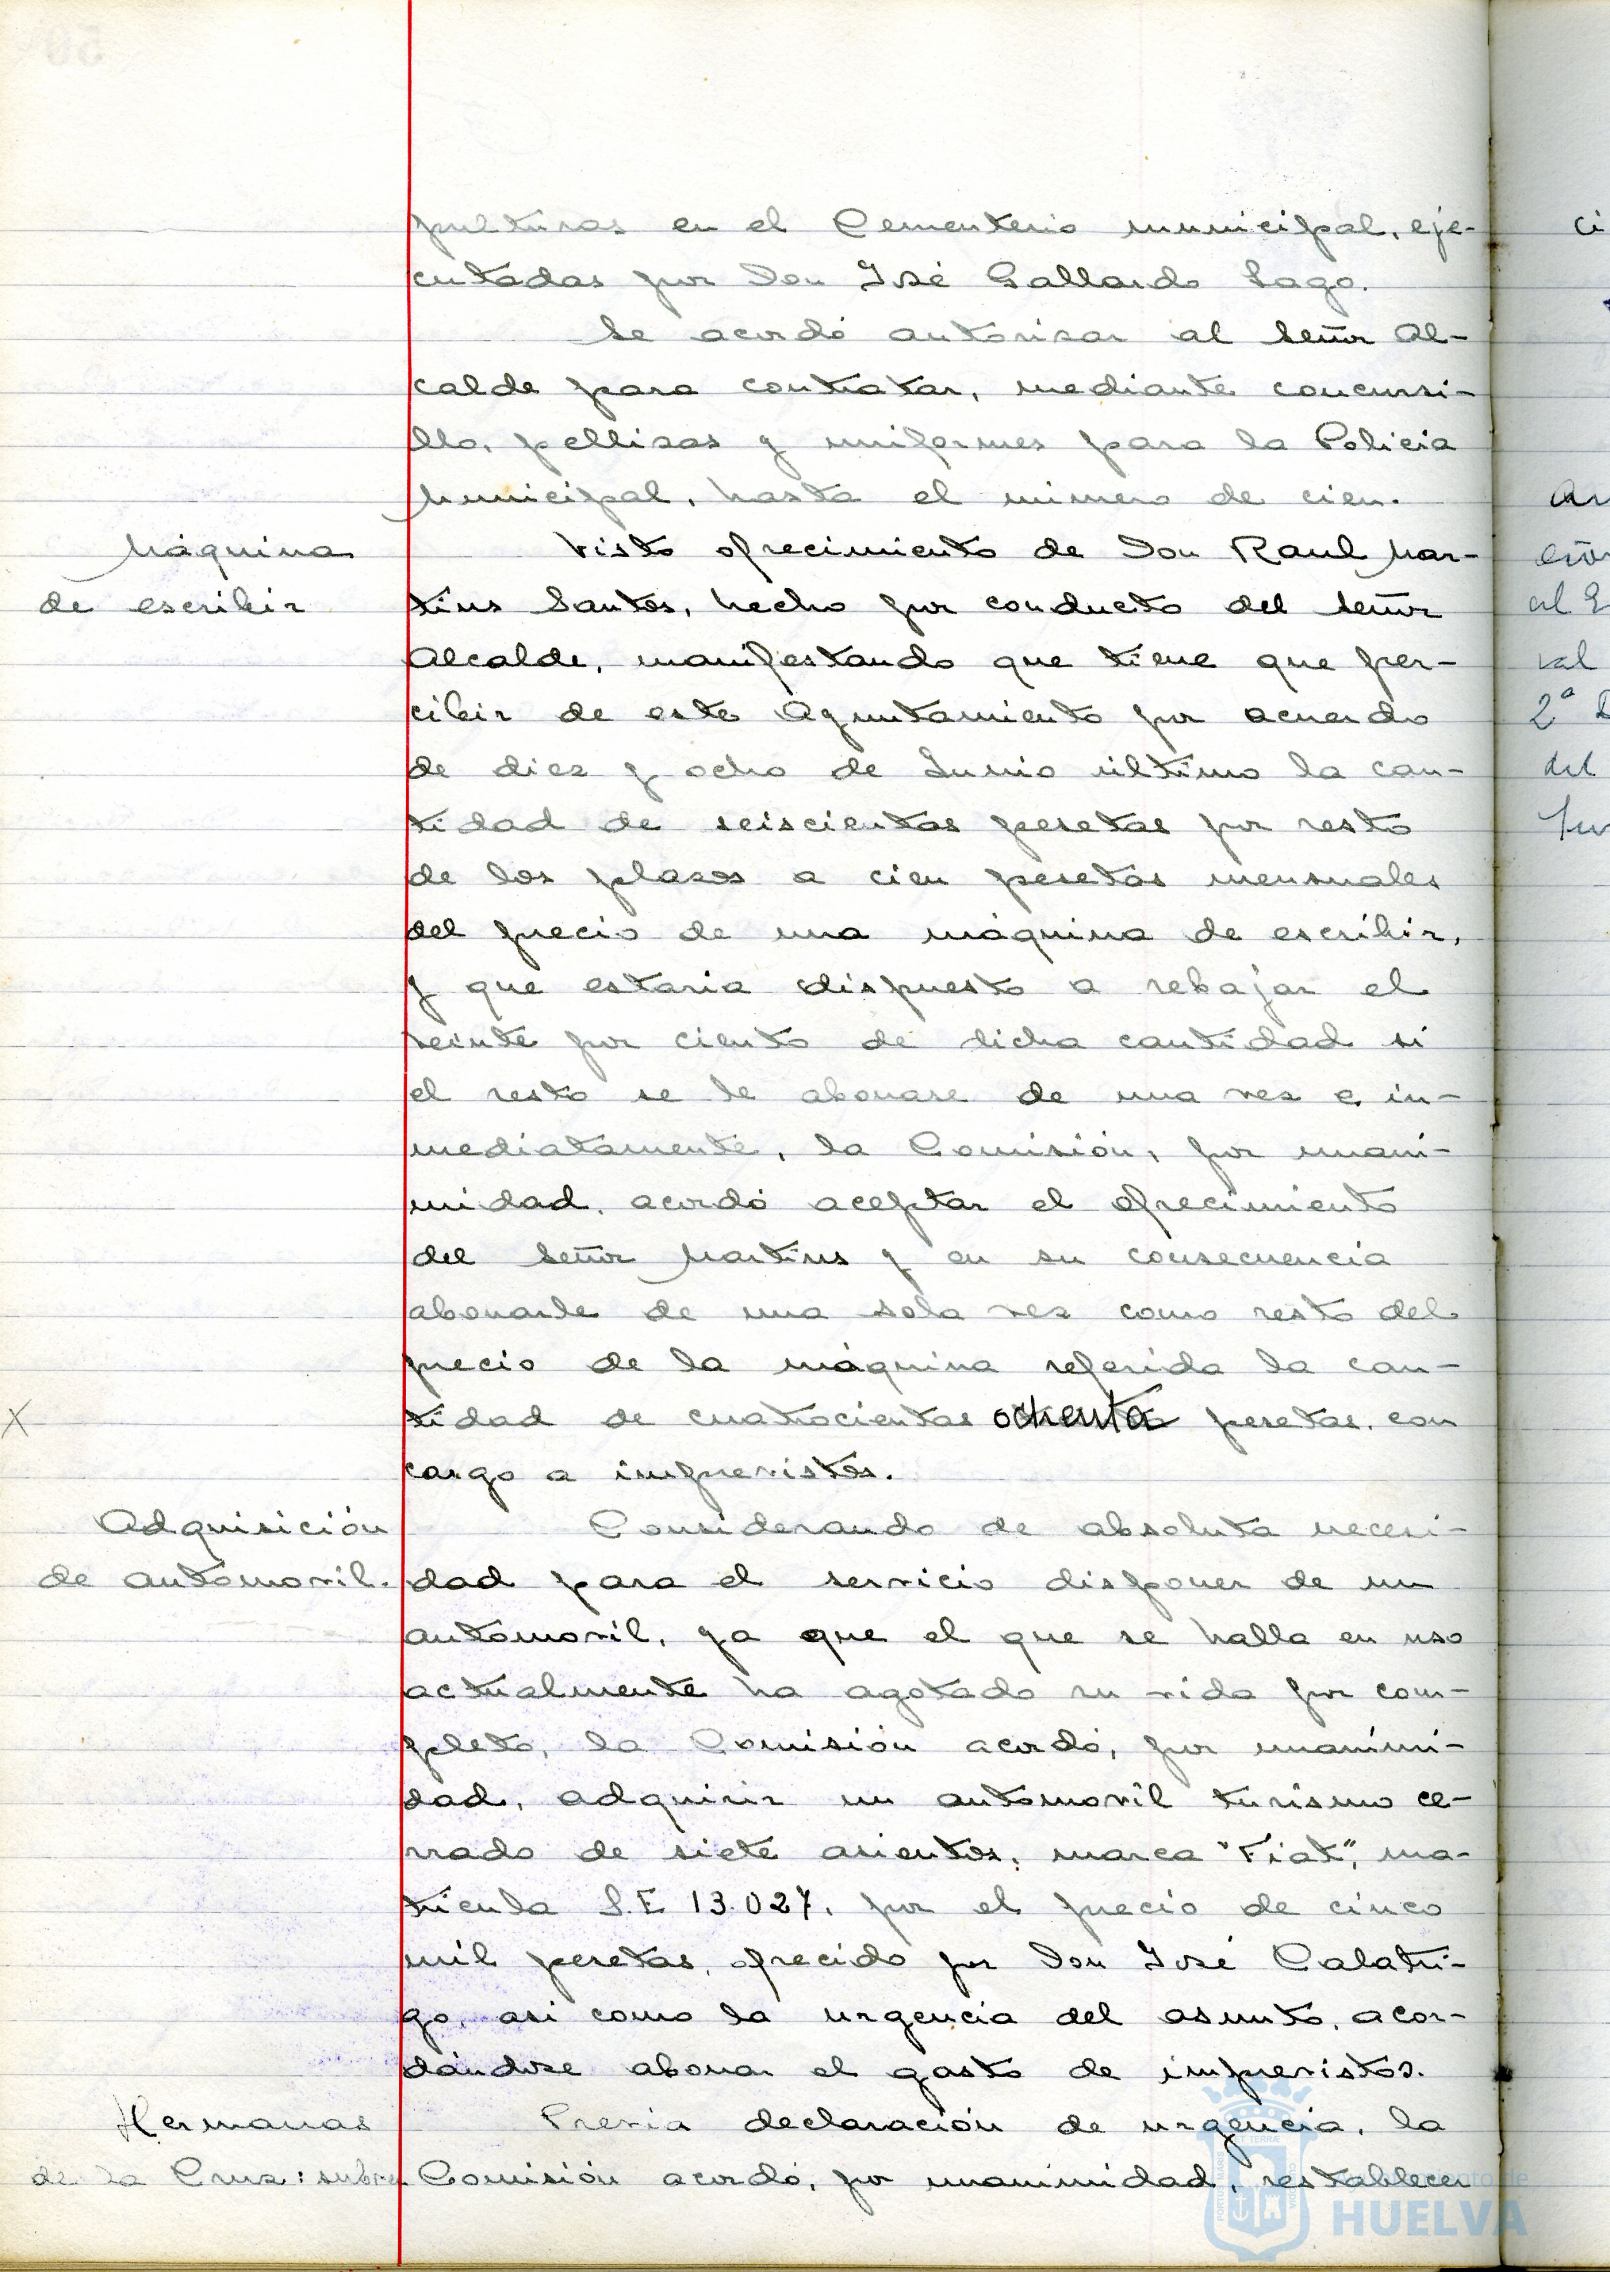 pulturas en el Cementerio municipal, eje-
cutadas por Don José Gallardo Lago.
Se acordó autorizar al Señor Al-
calde para contratar, mediante concursi-
llo, pellizas y uniformes para la Policia
Municipal, hasta el número de cien.
Máquina
de escribir
Visto ofrecimiento de Don Raul Mar-
tins Santos, hecho por conducto del Señor
Alcalde, manifestando que tiene que per-
cibir de este Ayuntamiento por acuerdo
de diez y ocho de Junio último la can-
tidad de seiscientas pesetas por resto
de los plazos a cien pesetas mensuales
del precio de una máquina de escribir,
y que estaria dispuesto a rebajar el
veinte por ciento de dicha cantidad si
el resto se le abonase de una vez e in-
mediatamente, la Comisión, por unani-
midad, acordó aceptar el ofrecimiento
del Señor Martins y en su consecuencia
abonarle de una sola vez como resto del
precio de la máquina referida la can-
X
tidad de cuatrocientas ochenta pesetas, con
cargo a imprevistos.
Adquisición
de automovil.
Considerando de absoluta necesi-
dad para el servicio disponer de un
automovil, ya que el que se halla en uso
actualmente ha agotado su vida por com-
pleto, la Comisión acordó, por unanimi-
dad, adquirir un automovil turismo ce-
rrado de siete asientos, marca "Fiat", ma-
tricula S.E 13.027, por el precio de cinco
mil pesetas, ofrecido por Don José Calatri-
go, asi como la urgencia del asunto, acor-
dándose abonar el gasto de imprevistos.
Hermanas
de la Cruz: subven
Previa declaración de urgencia, la
Comisión acordó, por unanimidad, restablecer
ci
al
2ª
del
Ayuntamiento de
HUELVA